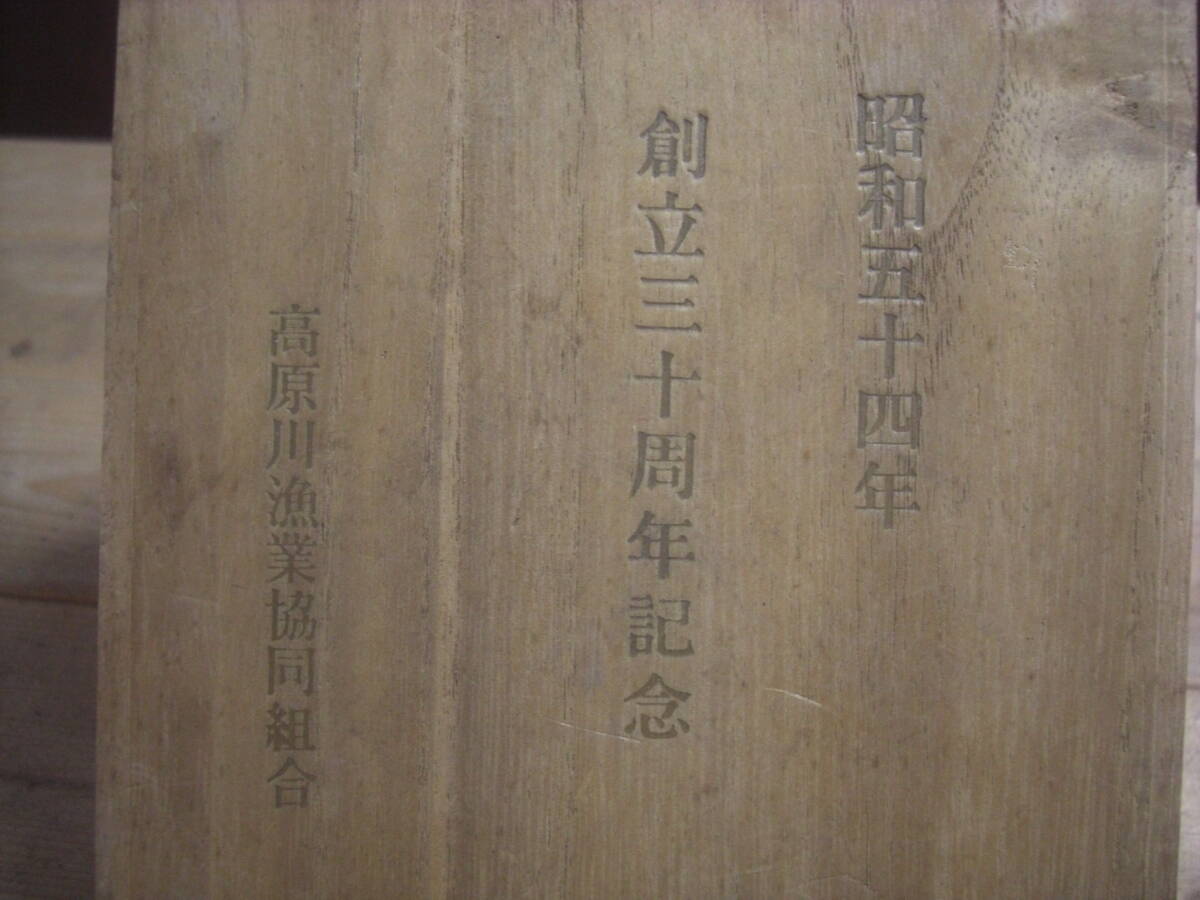 昭和五十四年
創立三十周年記念
高原川漁業協同組合